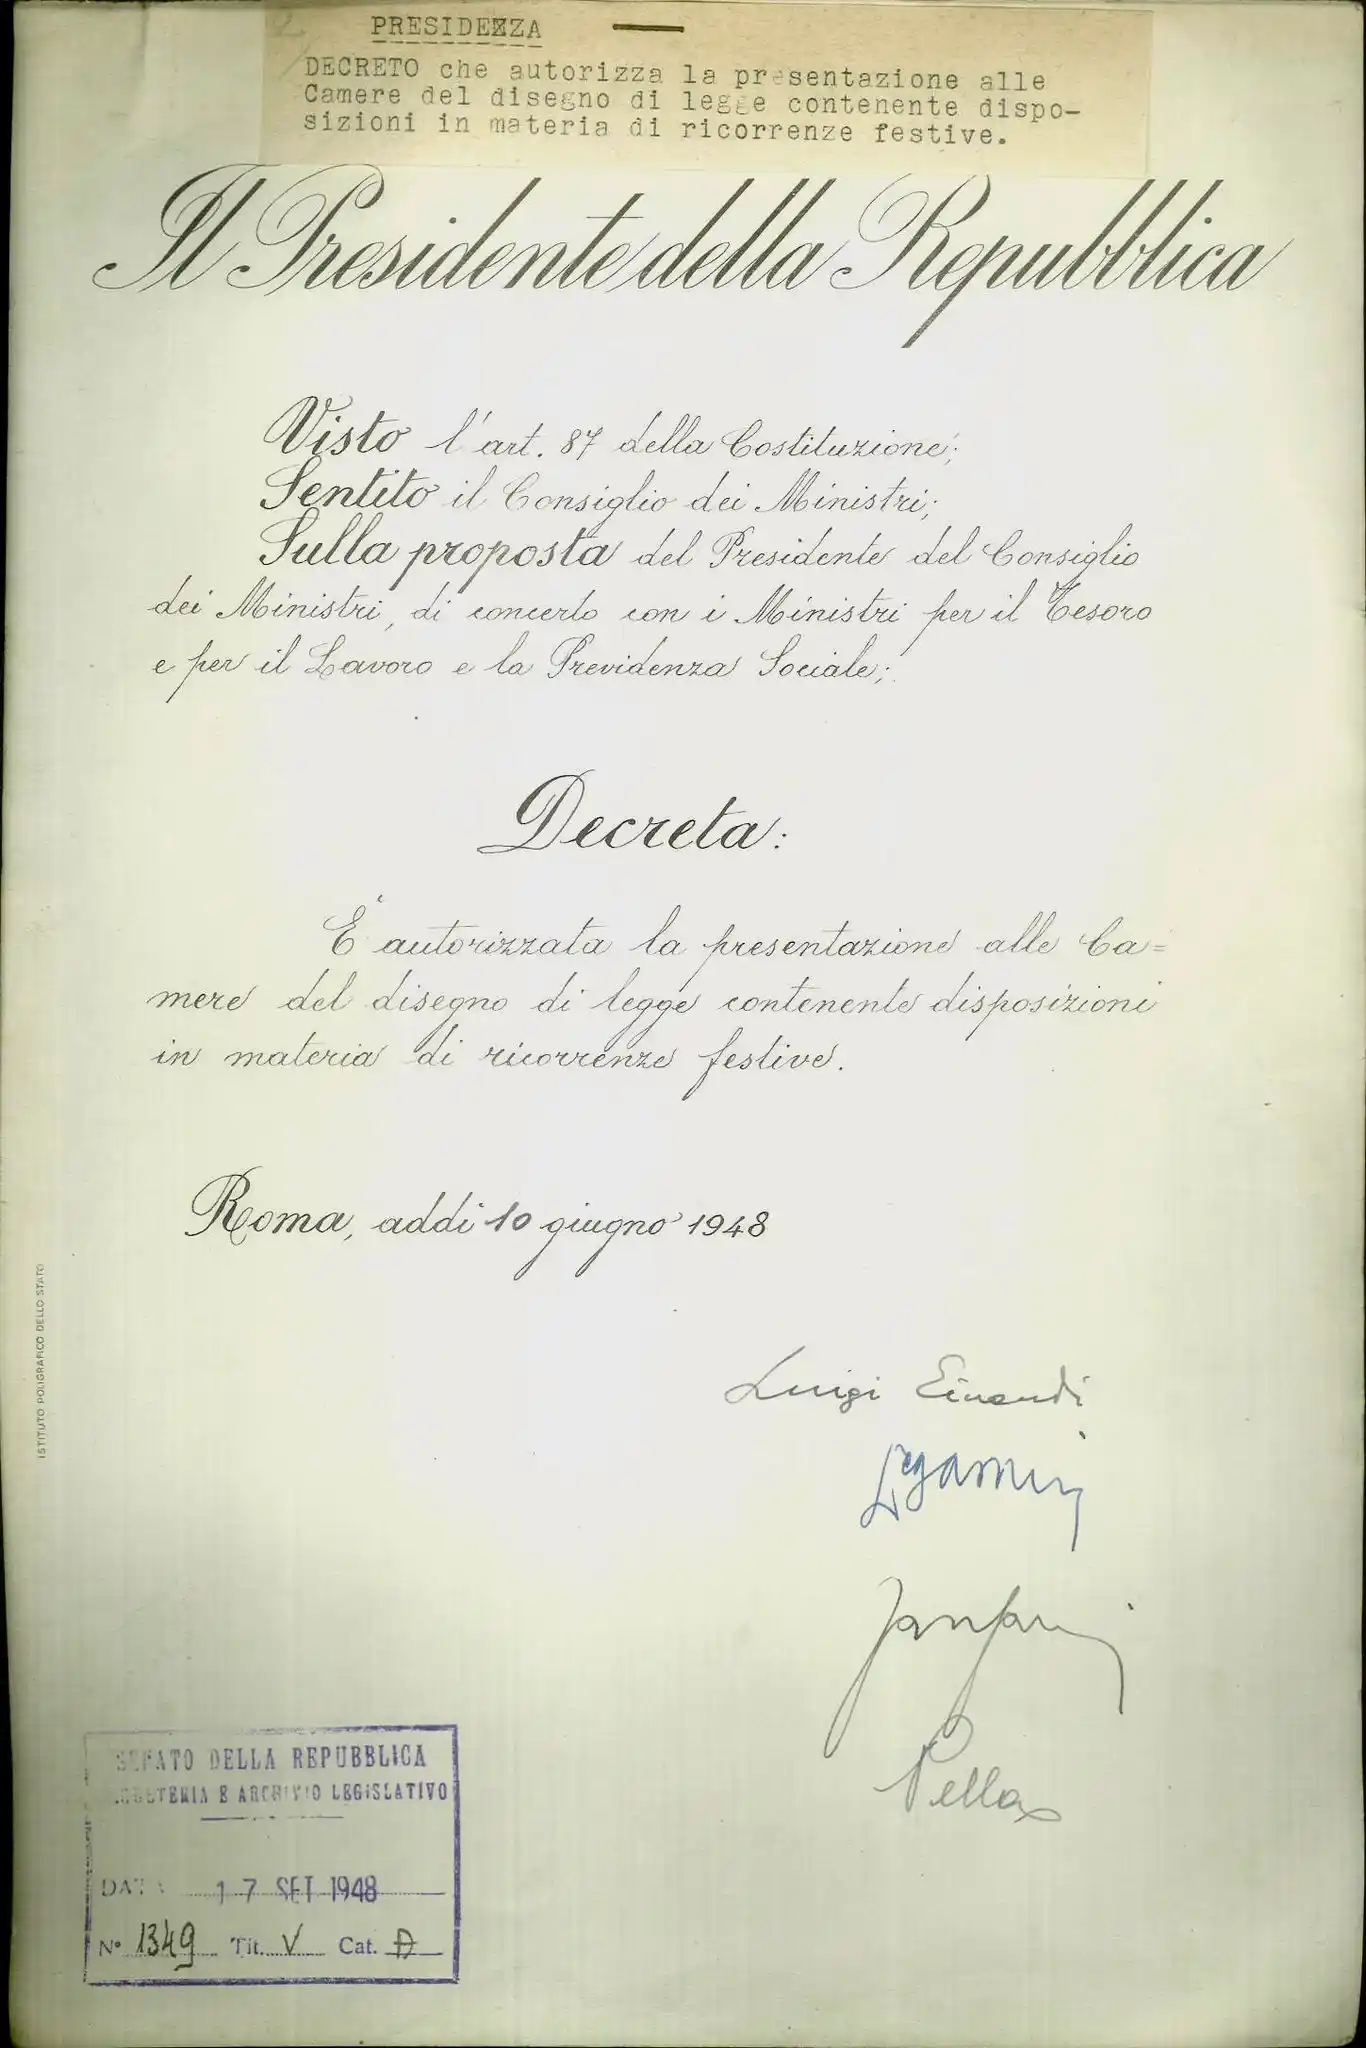 PRESIDENZA
DECRETO che autorizza la presentazione alle
Camere del disegno di legge contenente dispo-
sizioni in materia di ricorrenze festive.
Il Presidente della Repubblica
Visto l'art. 87 della Costituzione;
Sentito il Consiglio dei Ministri;
Sulla proposta del Presidente del Consiglio
dei Ministri, di concerto con i Ministri per il Tesoro
e per il Lavoro e la Previdenza Sociale;
Decreta:
È autorizzata la presentazione alle Ca=
mere del disegno di legge contenente disposizioni
in materia di ricorrenze festive.
Roma, addì 10 giugno 1948
Luigi Einaudi
Fanfani
Pella
ISTITUTO POLIGRAFICO DELLO STATO
SENATO DELLA REPUBBLICA
SEGRETERIA E ARCHIVIO LEGISLATIVO
DATA 17 SET 1948
N° 1349 Tit. V Cat. A